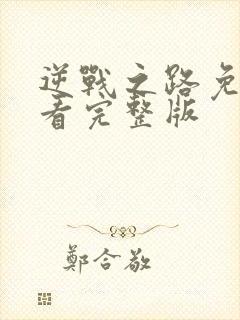 逆戰之路免
看完整版
鄭合敬